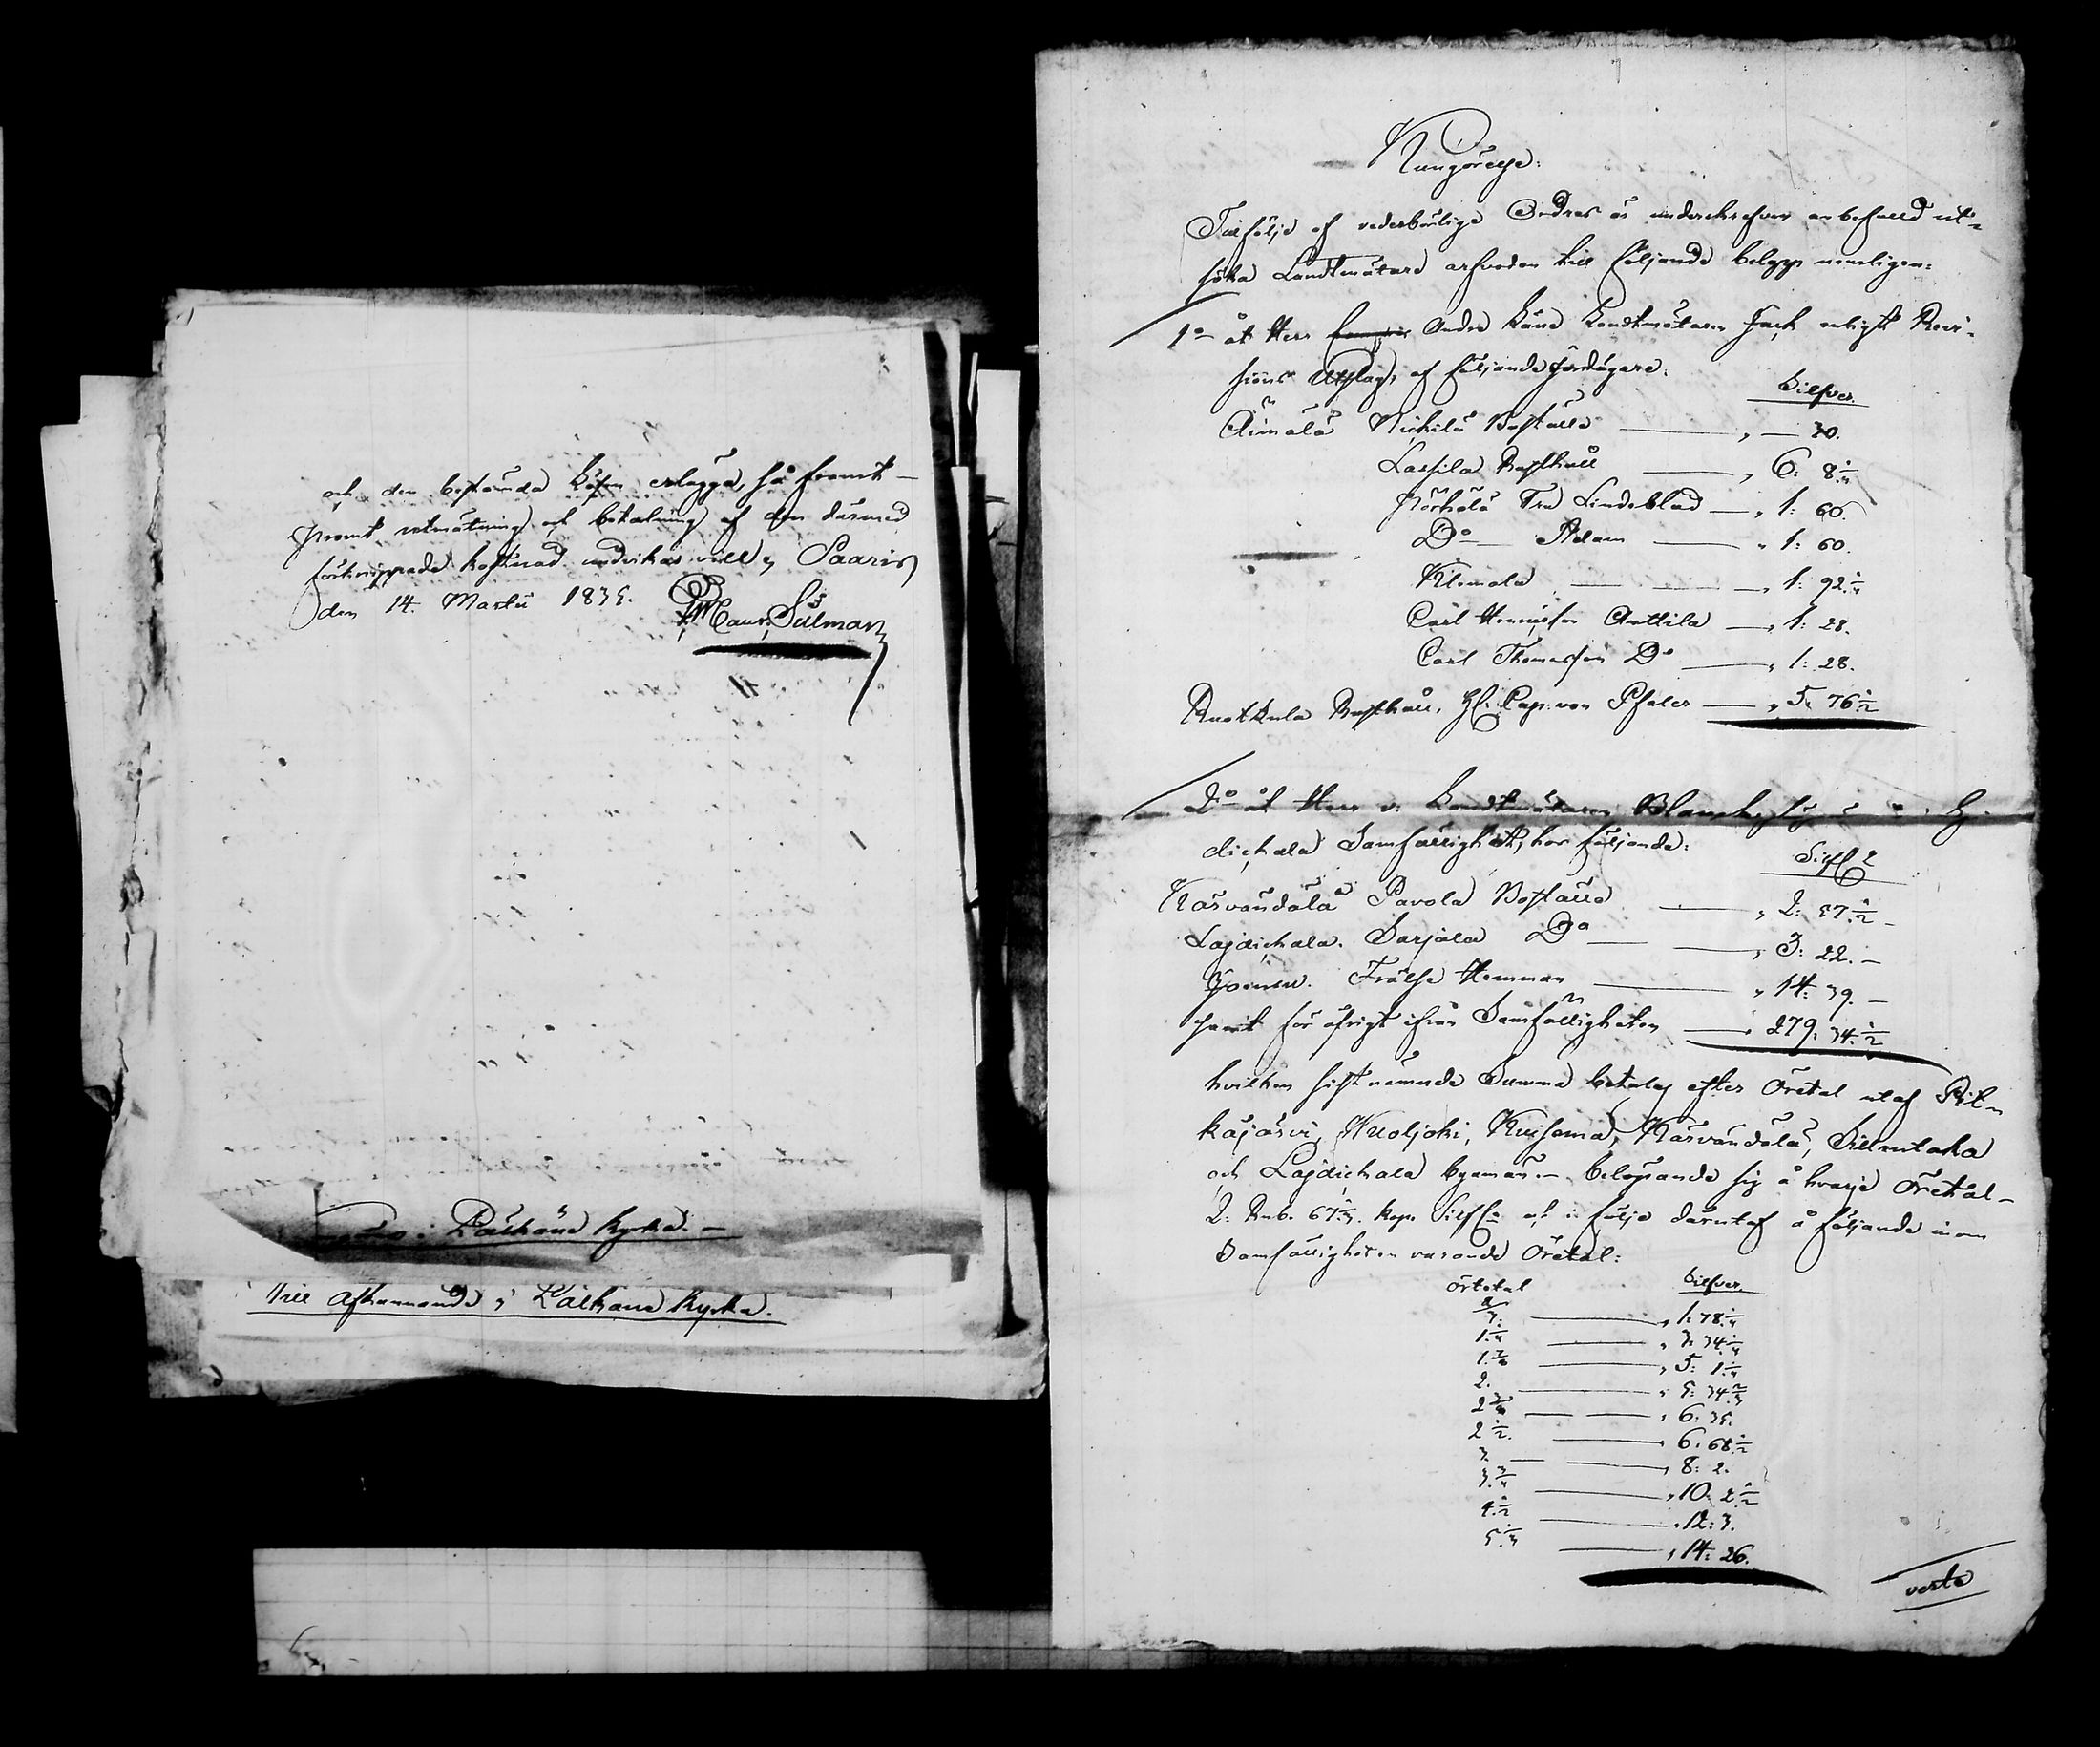 och den bestämda Lösen erlägga, så framt
promt utmätning och betalning af den därmed
förknippade kostnad undvikas vill, Saaris
den 14. Martii 1835.
Maur. Silman
i Pälkäne Kyrka. —
Till afkunnande i Pälkäne Kyrka.
Kungörelse:
Till följe af vederbörlige Ordres är undertecknad anbefalld ut-
söka Landtmätare arfvoden till följande belopp nemligen:
1o åt Herr Andre Landtmätaren Jack enligt Revi-
sions Utslag, af följande Jordägare:
Silfver.
Äimälä Nickilä Boställe — " — 30.
Lassila Rusthåll — " 6: 8 1/4
Hörhälä Fru Lindeblad — " 1: 60.
Do — Adam — " 1: 60.
Klemola — " 1: 92 1/4
Carl Henricsson Anttila — " 1: 28.
Carl Thomasson Do — " 1: 28.
Ruokkula Rusthåll, H. Cap. von Pfaler — " 5. 76 1/2
2o åt Herr v. Landtmätaren
dickala Samfällighet, hos följande:
Kärvändälä Pavola Boställe — " 2: 57 1/2 —
Lajdickala. Sarjala Do — " 3: 22. —
Joensu. Frälse Hemman — " 14: 39. —
samt för öfrigt ifrån Samfälligheten — " 279: 34 1/2
hvilken sistnämnde Summa betalas efter Öretal utaf Pit-
käjärvi, Kuoljoki, Kuisema, Kärvändälä, Sillentaka
och Lajdickala byamän. — belöpande sig å hvarje Öretal —
2: Rub. 67 1/3. Kop. Silfr och i följe därutaf å följande inom
Samfälligheten varande Öretal:
Öretal Silfver.
2/3. — " 1: 78 1/4
1 1/4 — " 3: 34 1/4
1 7/8 — " 5: 1 1/4
2. — " 5: 34 2/3
2 3/8 — " 6: 35.
2 1/2. — " 6: 68 1/2
3. — " 8: 2.
3 3/4 — " 10: 2 1/2
4 1/2 — " 12: 3.
5 1/3 — " 14: 26.
verte